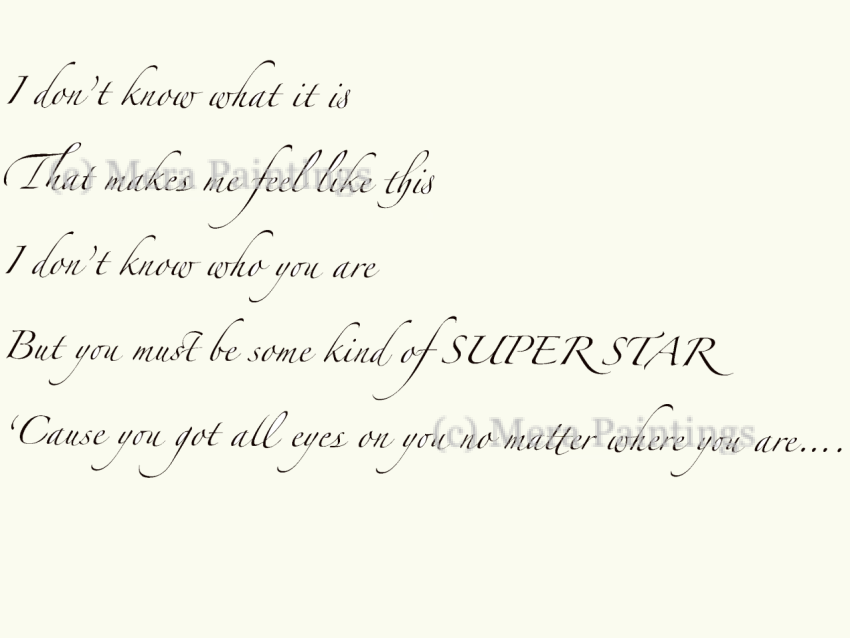 I don't know what it is
That makes me feel like this
(c) Mera Paintings
I don't know who you are
But you must be some kind of SUPER STAR
‘Cause you got all eyes on you no matter where you are....
(c) Mera Paintings